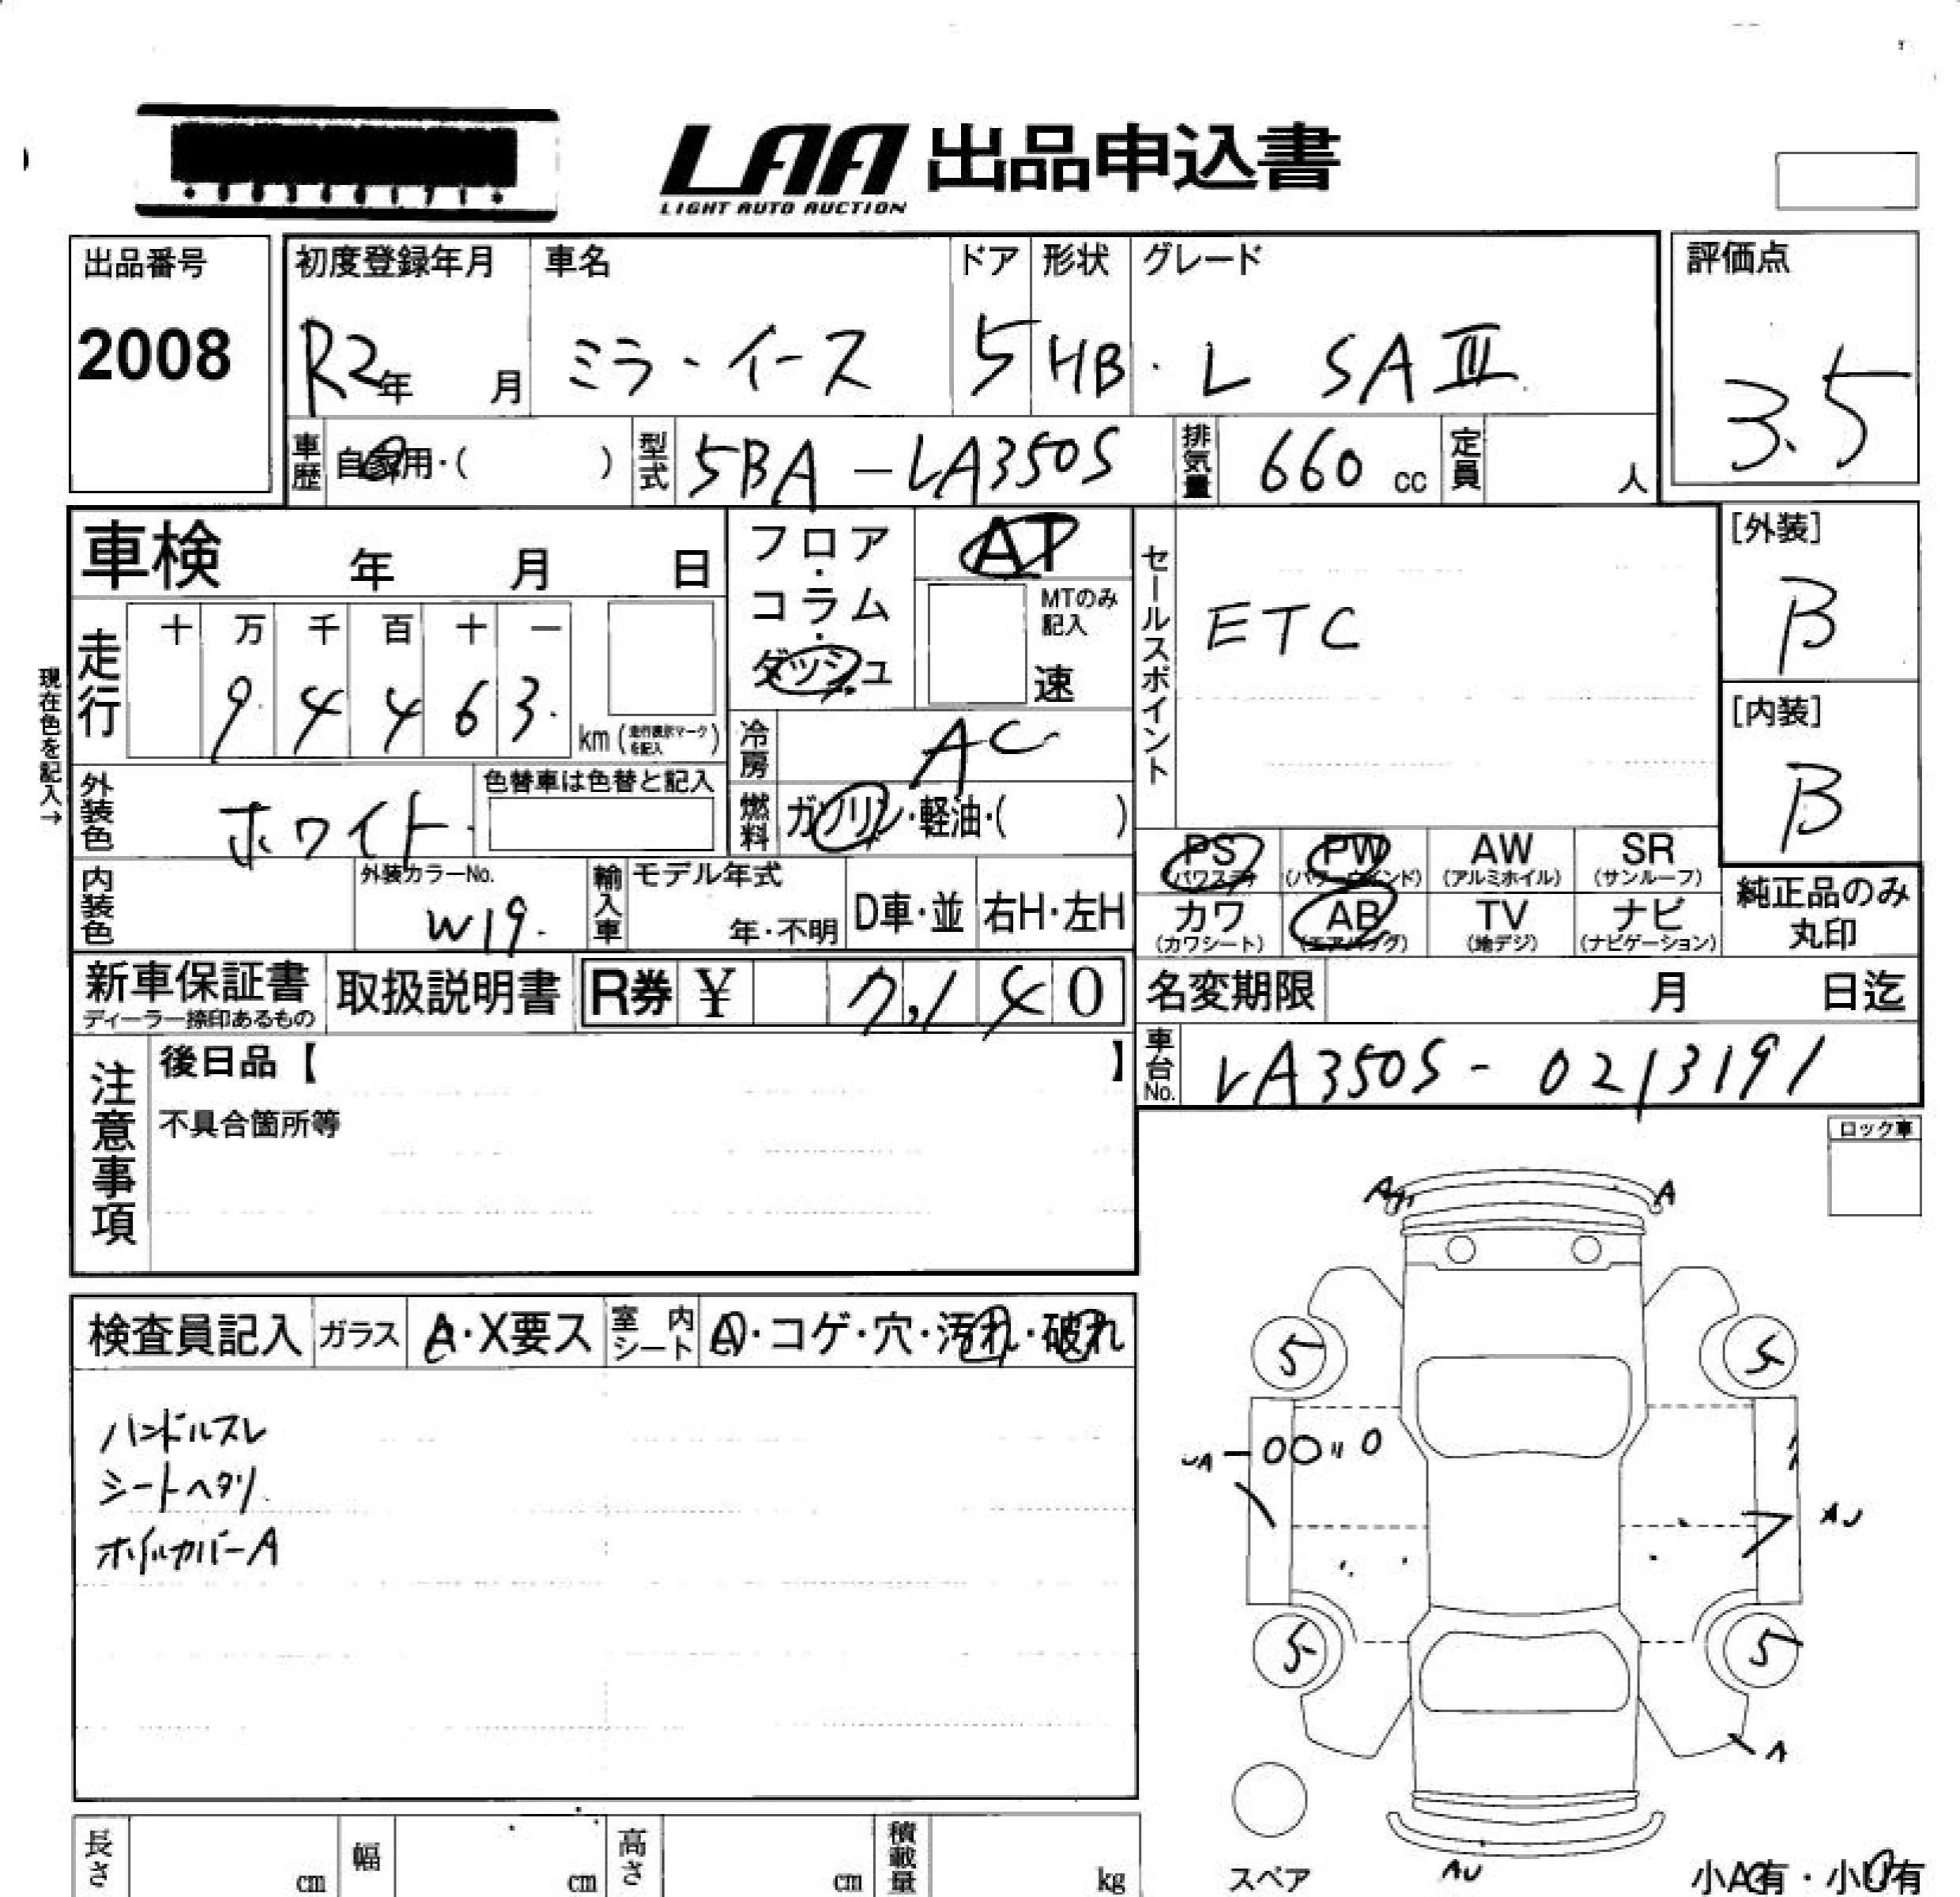 LAA 出品申込書
LIGHT AUTO AUCTION
出品番号
2008
初度登録年月 車名 ドア 形状 グレード
R2年 月 ミラ・イース 5 HB・ L SAⅢ
評価点
3.5
車歴 自家用・( ) 型式 5BA-LA350S 排気量 660 cc 定員 人
車検 年 月 日
フロア・コラム・ダッシュ
AT
MTのみ記入
速
セールスポイント
ETC
[外装]
B
[内装]
B
現在色を記入→
走行 十 万 千 百 十 一
9 4 4 6 3
km (走行表示マークを記入)
冷房 AC
外装色 ホワイト
色替車は色替と記入
燃料 ガソリン・軽油・( )
PS (パワステ) PW (パワーウインド) AW (アルミホイル) SR (サンルーフ)
カワ (カワシート) AB (エアバッグ) TV (地デジ) ナビ (ナビゲーション)
純正品のみ丸印
内装色
外装カラーNo.
W19
輸入車 モデル年式 年・不明 D車・並 右H・左H
新車保証書
ディーラー捺印あるもの
取扱説明書
R券 ¥ 7,140
名変期限 月 日迄
車台No. LA350S-0213191
注意事項
後日品【 】
不具合箇所等
ロック車
検査員記入 ガラス A・X要ス 室内シート A・コゲ・穴・汚れ・破れ
ハンドルスレ
シートヘタリ
ホイルカバーA
A
5 5
AU
5 5
A
スペア
AU
小A有・小U有
長さ cm 幅 cm 高さ cm 積載量 kg